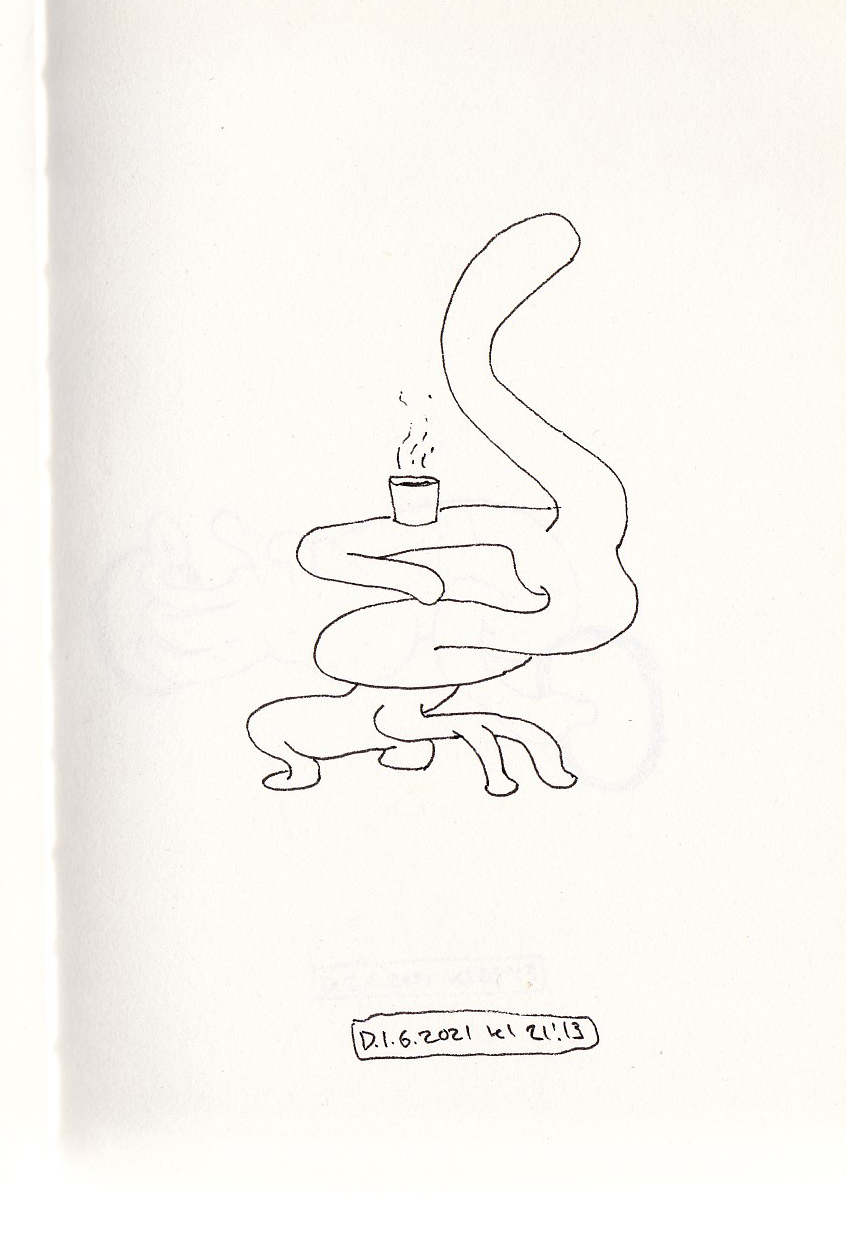 D.1.6.2021 kl 21:13